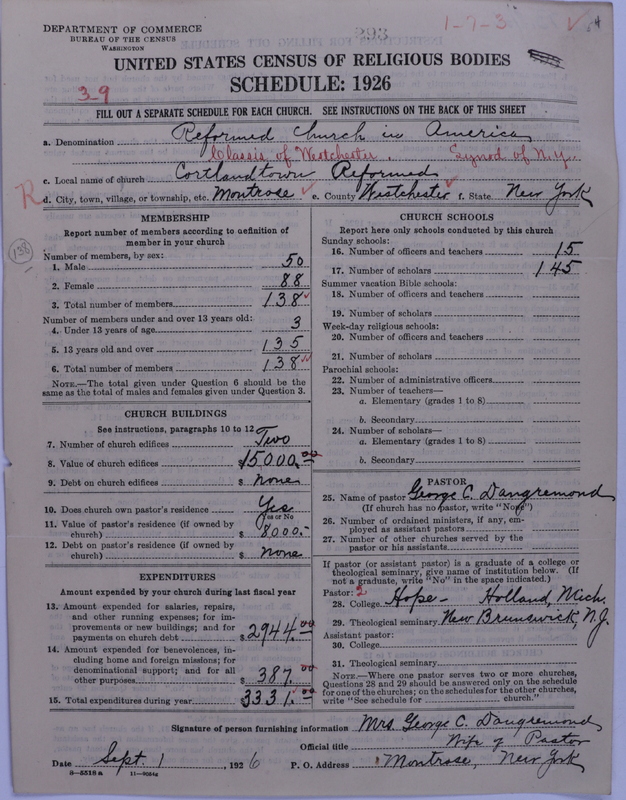 DEPARTMENT OF COMMERCE
BUREAU OF THE CENSUS
WASHINGTON
293
1-7-3 ✓
UNITED STATES CENSUS OF RELIGIOUS BODIES
SCHEDULE: 1926
39
FILL OUT A SEPARATE SCHEDULE FOR EACH CHURCH. SEE INSTRUCTIONS ON THE BACK OF THIS SHEET
a. Denomination Reformed Church in America
Classis of Westchester. Synod of N.Y.
c. Local name of church Cortlandtown Reformed
R d. City, town, village, or township, etc. Montrose ✓ e. County Westchester ✓ f. State New York
138
MEMBERSHIP
Report number of members according to definition of
member in your church
Number of members, by sex:
1. Male 50
2. Female 88
3. Total number of members 138 ✓
Number of members under and over 13 years old:
4. Under 13 years of age 3
5. 13 years old and over 135
6. Total number of members 138 ✓✓
NOTE.—The total given under Question 6 should be
the same as the total of males and females given under Question 3.
CHURCH BUILDINGS
See instructions, paragraphs 10 to 12
7. Number of church edifices Two
8. Value of church edifices $ 15000.00
9. Debt on church edifices $ none
10. Does church own pastor's residence Yes
Yes or No
11. Value of pastor's residence (if owned by
church) $ 8000.-
12. Debt on pastor's residence (if owned by
church) $ none
EXPENDITURES
Amount expended by your church during last fiscal year
13. Amount expended for salaries, repairs,
and other running expenses; for im-
provements or new buildings; and for
payments on church debt $ 2944.00
14. Amount expended for benevolences, in-
cluding home and foreign missions; for
denominational support; and for all
other purposes $ 387.00
15. Total expenditures during year $ 3331.00
CHURCH SCHOOLS
Report here only schools conducted by this church
Sunday schools:
16. Number of officers and teachers 15
17. Number of scholars 145
Summer vacation Bible schools:
18. Number of officers and teachers
19. Number of scholars
Week-day religious schools:
20. Number of officers and teachers
21. Number of scholars
Parochial schools:
22. Number of administrative officers
23. Number of teachers—
a. Elementary (grades 1 to 8)
b. Secondary
24. Number of scholars—
a. Elementary (grades 1 to 8)
b. Secondary
PASTOR
25. Name of pastor George C. Dangremond
(If church has no pastor, write "None")
26. Number of ordained ministers, if any, em-
ployed as assistant pastors
27. Number of other churches served by the
pastor or his assistants
If pastor (or assistant pastor) is a graduate of a college or
theological seminary, give name of institution below. (If
not a graduate, write "No" in the space indicated.)
Pastor: 2
28. College Hope - Holland, Mich.
29. Theological seminary New Brunswick, N.J.
Assistant pastor:
30. College
31. Theological seminary
NOTE.—Where one pastor serves two or more churches,
Questions 28 and 29 should be answered only on the schedule
for one of the churches; on the schedules for the other churches,
write "See schedule for church."
Signature of person furnishing information Mrs. George C. Dangremond
Official title Wife of Pastor
Date Sept. 1, 1926 P. O. Address Montrose, New York
8-5518a 11-9054a